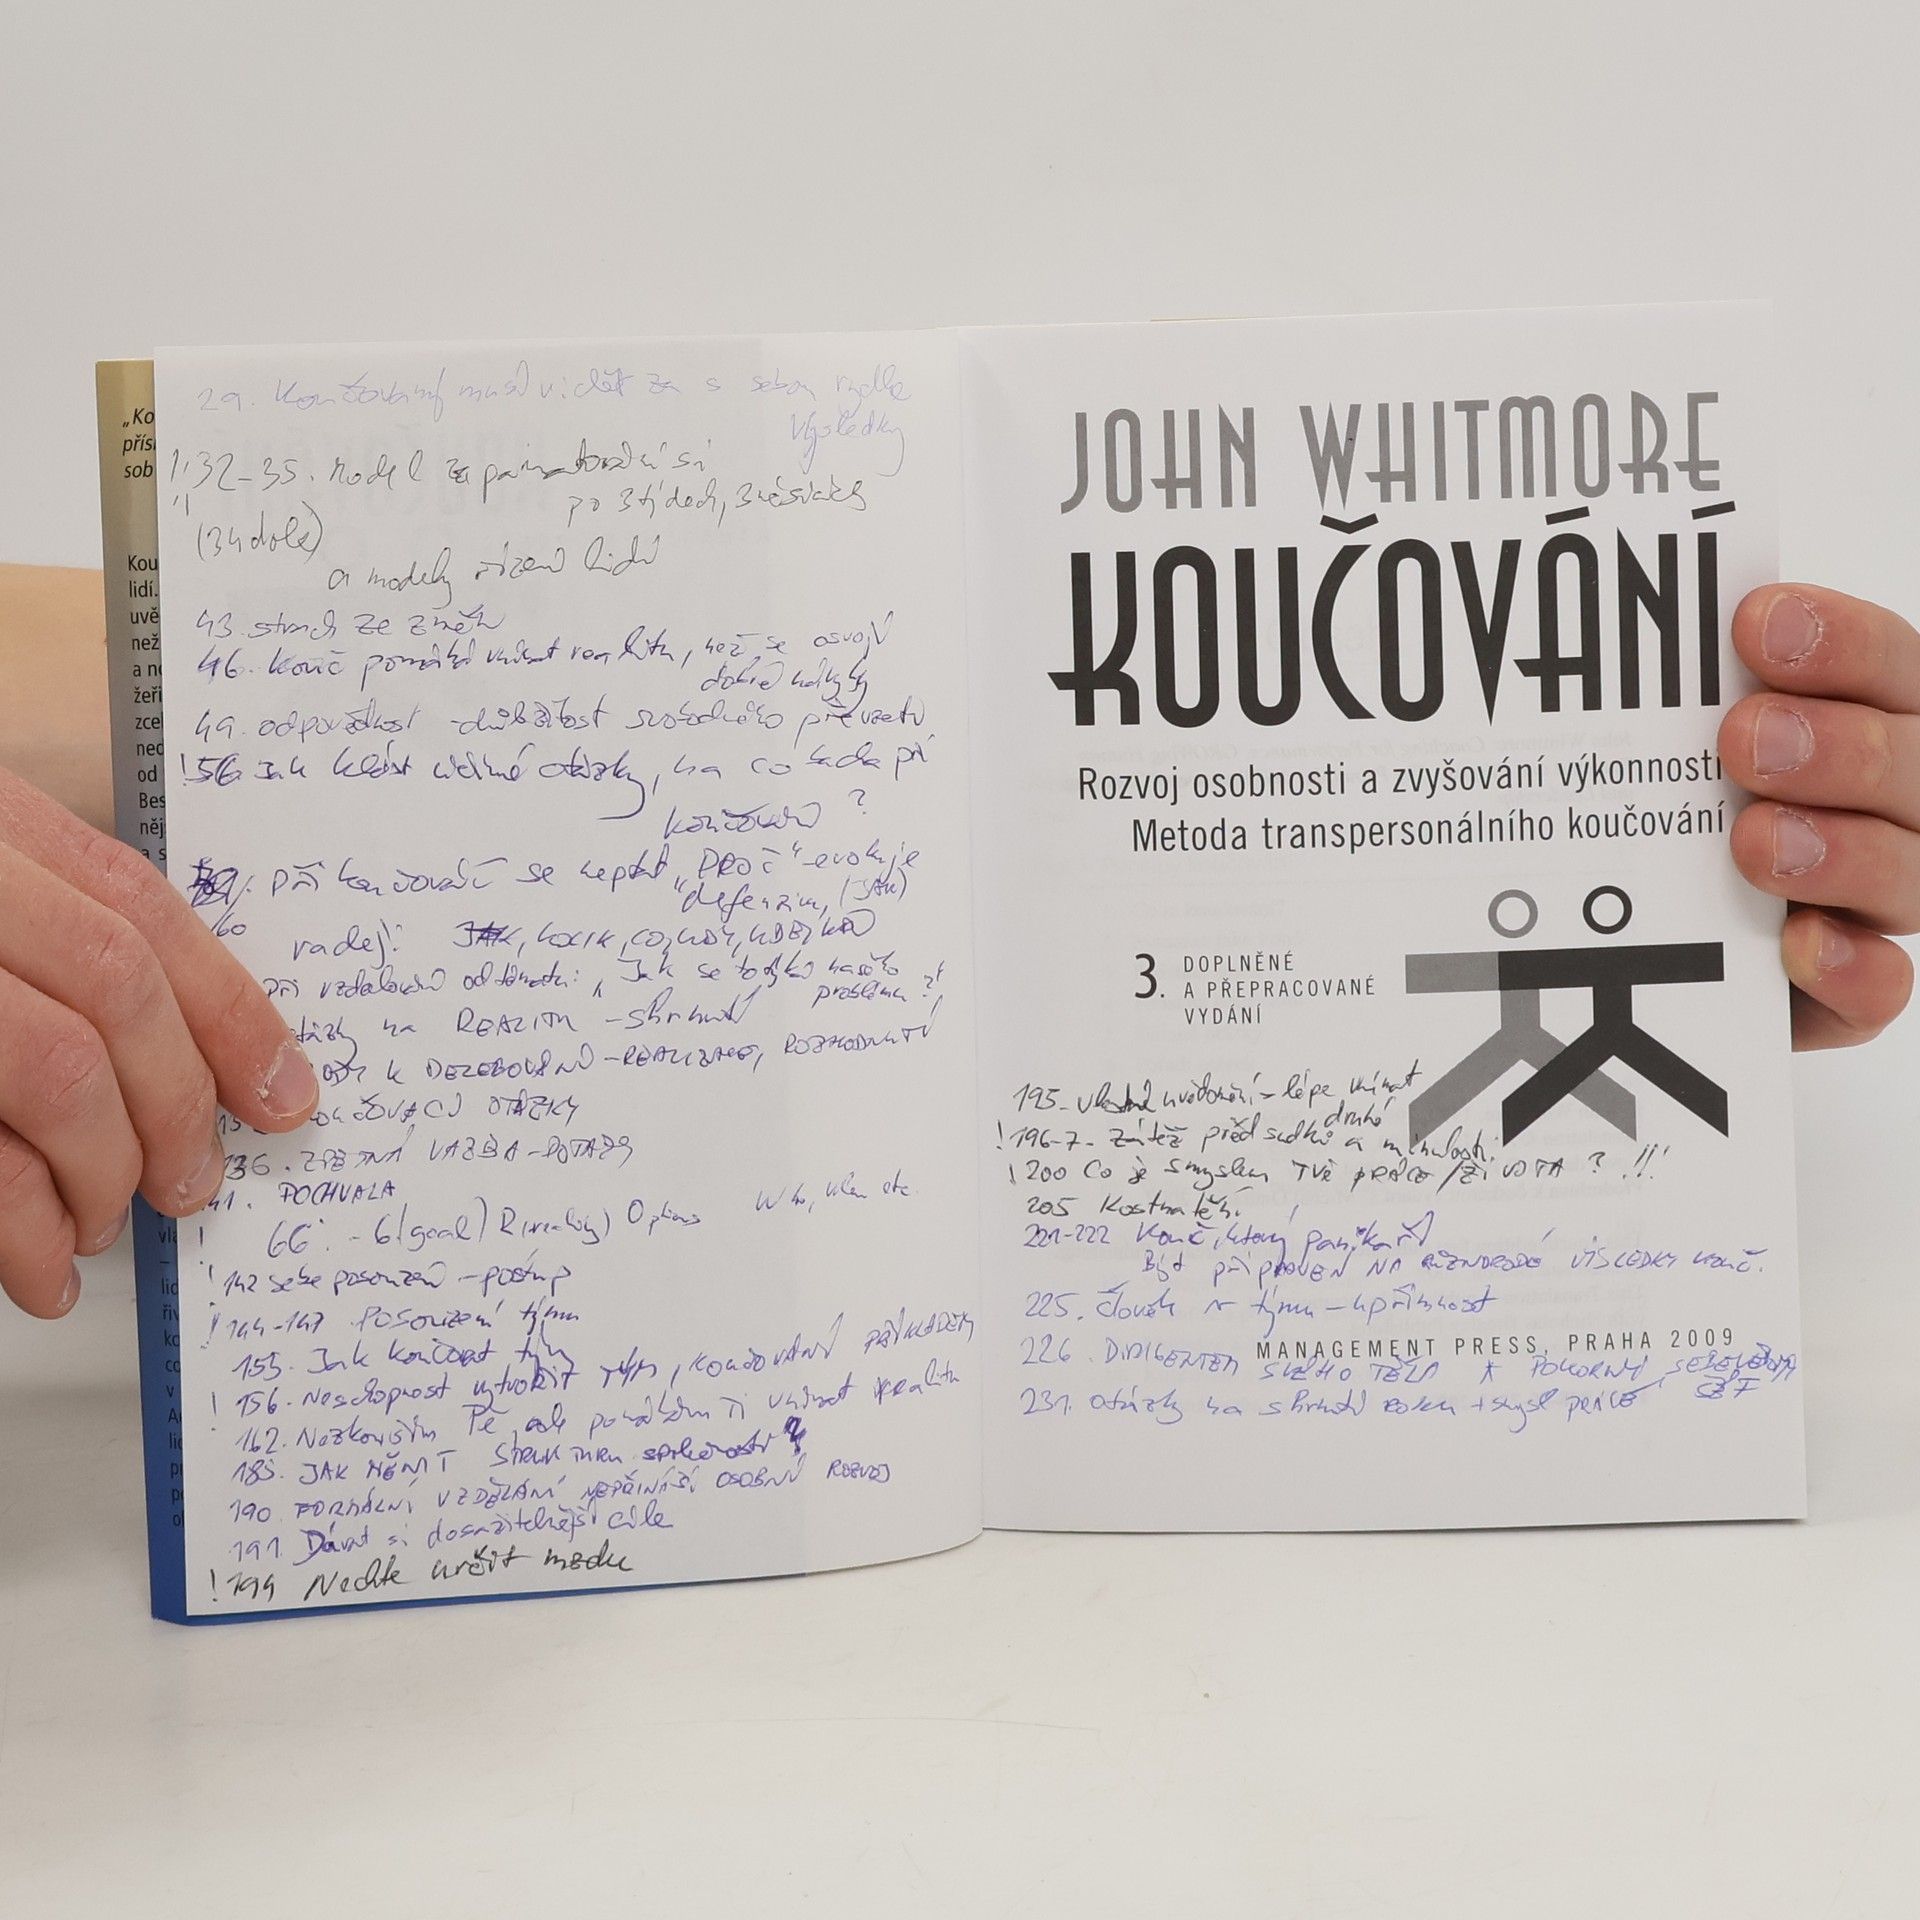 „Ko
přísl
sob
Kou
lidí.
uvě
než
a ne
žeři
zcel
ned
od
Bes
něj
a s
29. Koučovaný musí vidět za s sebou rychle
výsledky
!32-35. Model zapamatování si
po 3 týdech, 3 měsících
(34 dole)
a modely řízení lidí
43. strach ze změn
46. Kouč pomáhá vnímat realitu, než se osvojí
dobré návyky
49. odpovědnost - důležitost svobodného převzetí
!56 Jak klást účinné otázky, na co
koučování ?
při koučování se neptat „PROČ“ - evokuje
defenzivu, (JAK)
60
raději: KOLIK, CO, KDY, KDE, KDO
při vzdalování od tématu: „Jak se to týká našeho
problému?“
na REALITU - shrnutí
K DELEGOVÁNÍ - REALIZACE, ROZHODNUTÍ
OTÁZKY
136. ZPĚTNÁ VAZBA - DOTAZY
41. POCHVALA
! 66. - G(goal) R(reality) Options Who, When etc.
! 142 sebe posouzení - postup
! 144-147 Posouzení týmu
155. Jak koučovat tým
! 156. Neschopnost vytvořit tým, KOUČOVÁNÍ PŘÍKLADEM
162. Nezkouším Tě, ale pomáhám Ti vnímat realitu
185. JAK MĚNIT STRUKTURU společnosti
190 FORMÁLNÍ VZDĚLÁNÍ NEPŘINÁŠÍ OSOBNÍ ROZVOJ
191. Dávat si dosažitelnější cíle
! 194 Nechte určit mzdu
JOHN WHITMORE
KOUČOVÁNÍ
Rozvoj osobnosti a zvyšování výkonnosti
Metoda transpersonálního koučování
3. DOPLNĚNÉ
A PŘEPRACOVANÉ
VYDÁNÍ
195 - vlastní uvědomění = lépe vnímat
druhé
! 196-7 - Zátěž předsudků a minulosti
! 200 Co je smyslem TVÉ PRÁCE/ŽIVOTA ? !!!
205 Kostnatění
221-222 Kouč, který panikaří
Být PŘIPRAVEN NA RŮZNORODÉ VÝSLEDKY KOUČ.
225. Člověk v týmu - upřímnost
MANAGEMENT PRESS, PRAHA 2009
226. DIRIGENTEM SVÉHO TĚLA X POKORNÝ,
231. otázky na shrnutí roku + smysl PRÁCE